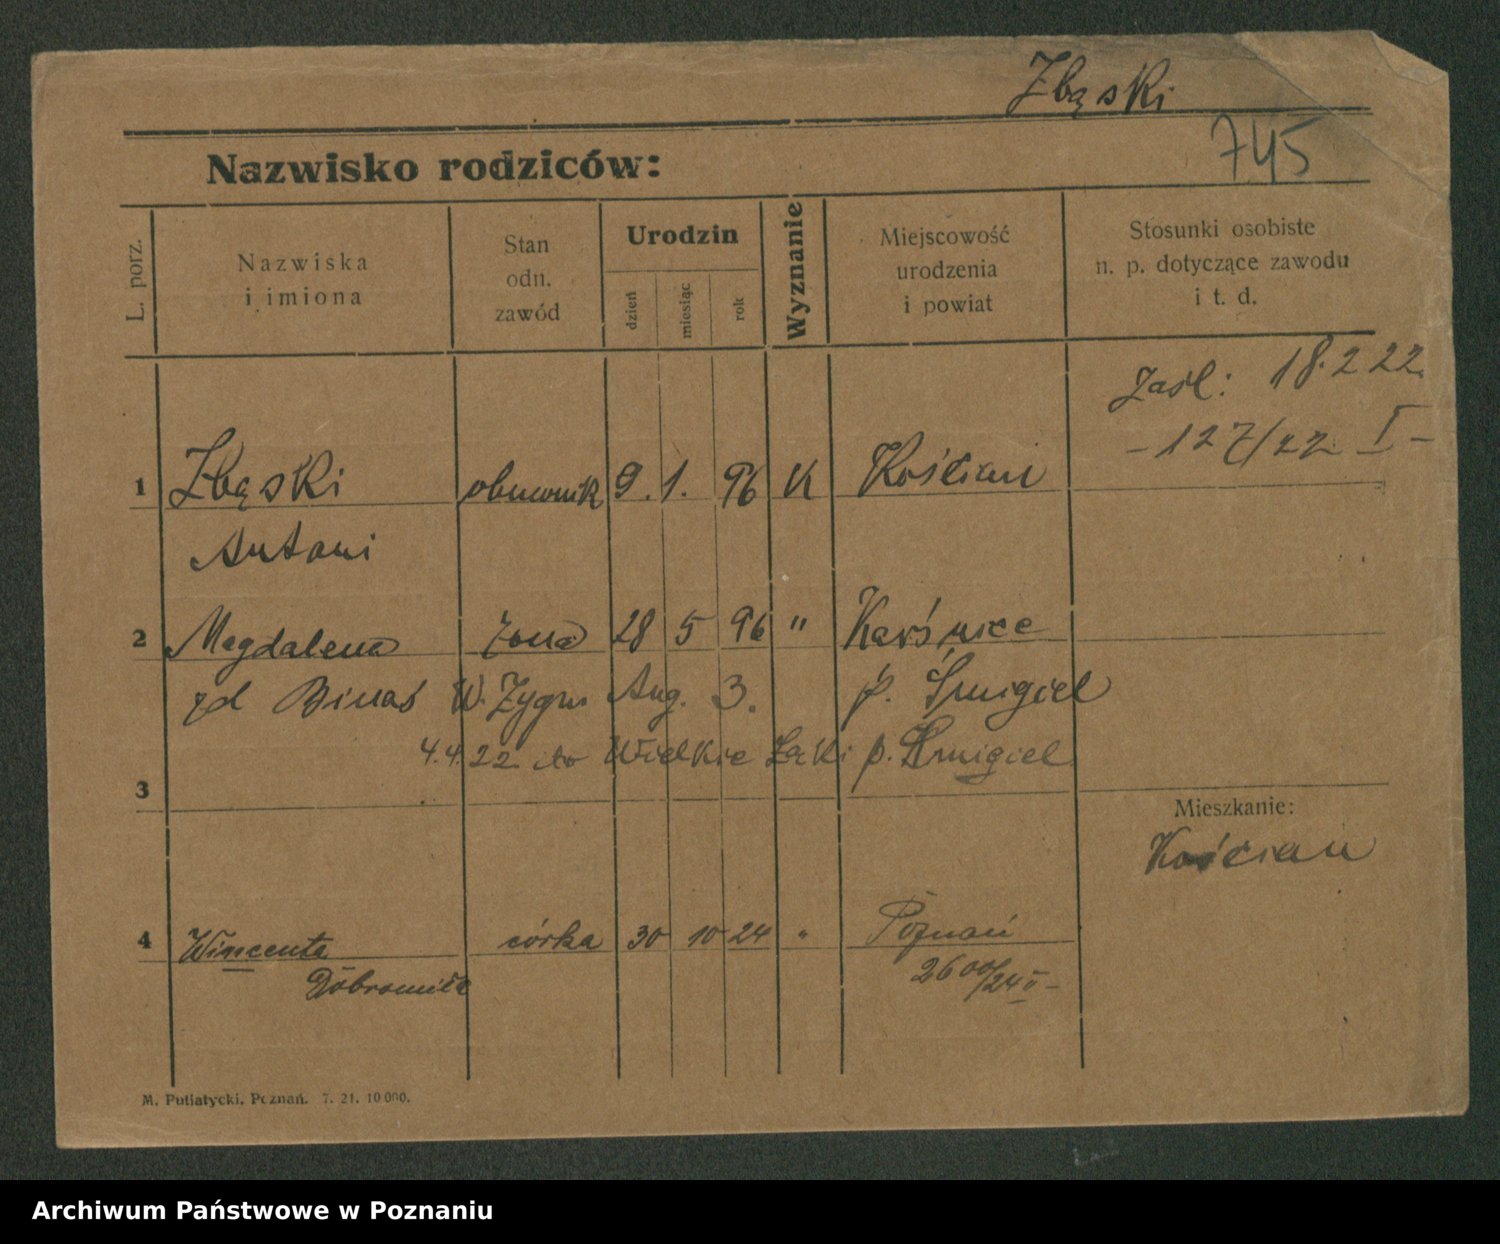 Zbąski
745
Nazwisko rodziców:
L. porz.
Nazwiska
i imiona
Stan
odn.
zawód
Urodzin
dzień
miesiąc
rok
Wyznanie
Miejscowość
urodzenia
i powiat
Stosunki osobiste
n. p. dotyczące zawodu
i t. d.
Zaśl: 18.2 22.
- 127/22 I -
1 Zbąski 9. 1. 96 K Kościan
Antoni
2 Magdalena żona 28 5 96 "
zd Binaś W. Zygm Aug. 3. p. Śmigiel
4.4.22 do Wielkie Łąki p. Śmigiel
3
Mieszkanie:
Kościan
4 Wincenta córka 30 10 24 " Poznań
Dobromiła 2600/24 V-
M. Putiatycki, Poznań. 7. 21. 10 000.
Archiwum Państwowe w Poznaniu